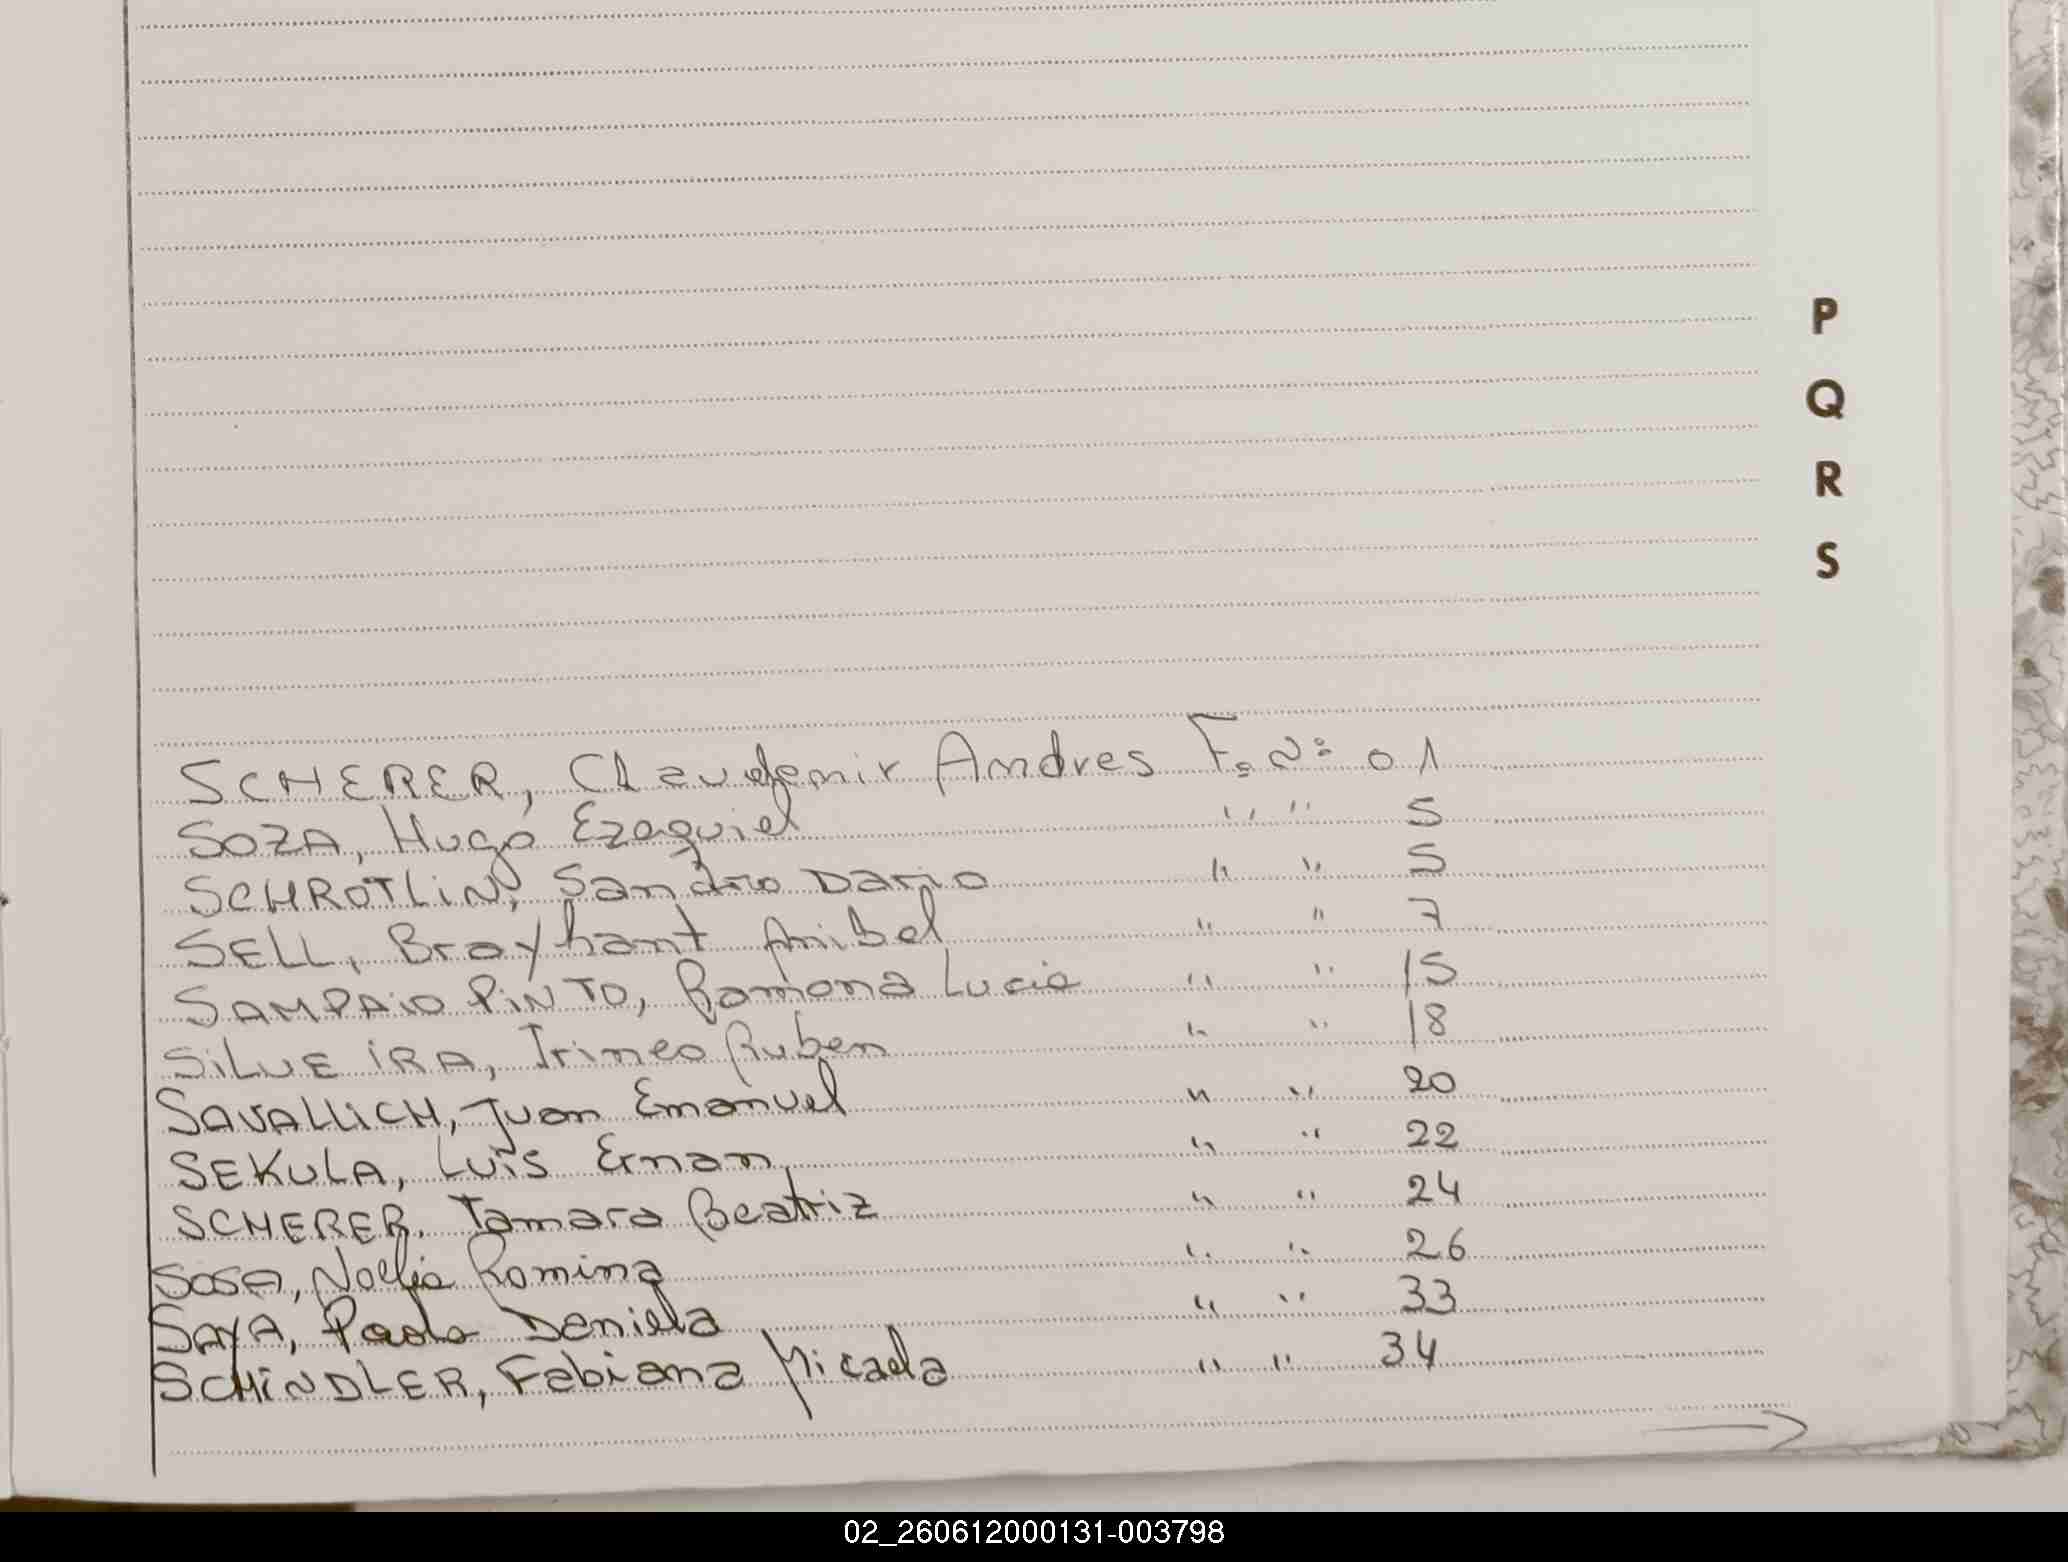 P
Q
R
S
SCHERER, Claudemir Andres Fº Nº 01
SOZA, Hugo Ezequiel " " 5
SCHROTLIN, Sandro Dario " " 5
SELL, Brayhant Anibal " " 7
SAMPAIO PINTO, Ramona Lucia " " 15
SILVEIRA, Irineo Ruben " " 18
SAVALLICH, Juan Emanuel " " 20
SEKULA, Luis Ernan " " 22
SCHERER, Tamara Beatriz " " 24
SOSA, Noelia Romina " " 26
SAYA, Paola Daniela " " 33
SCHINDLER, Fabiana Micaela " " 34
→
02_260612000131-003798